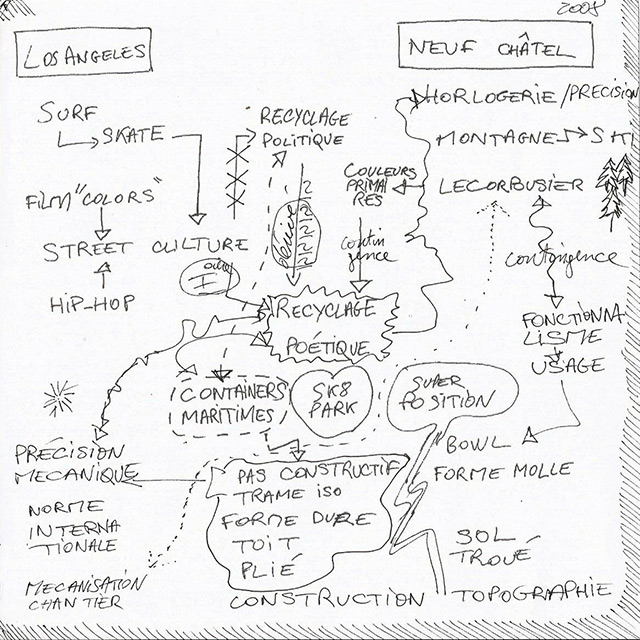 2008
LOS ANGELES
NEUF CHÂTEL
SURF
SKATE
FILM "COLORS"
STREET CULTURE
HIP-HOP
RECYCLAGE
POLITIQUE
COULEURS
PRIMAI
RES
contin
gence
HORLOGERIE/PRECISION
MONTAGNE
LECORBUSIER
contingence
FONCTIONNA
LISME
USAGE
RECYCLAGE
POÉTIQUE
CONTAINERS
MARITIMES
SK8
PARK
SUPER
POSITION
BOWL
FORME MOLLE
PRÉCISION
MECANIQUE
NORME
INTERNA
TIONALE
MECANISATION
CHANTIER
PAS CONSTRUCTIF
TRAME ISO
FORME DURE
TOIT
PLIÉ
CONSTRUCTION
SOL
TROUÉ
TOPOGRAPHIE